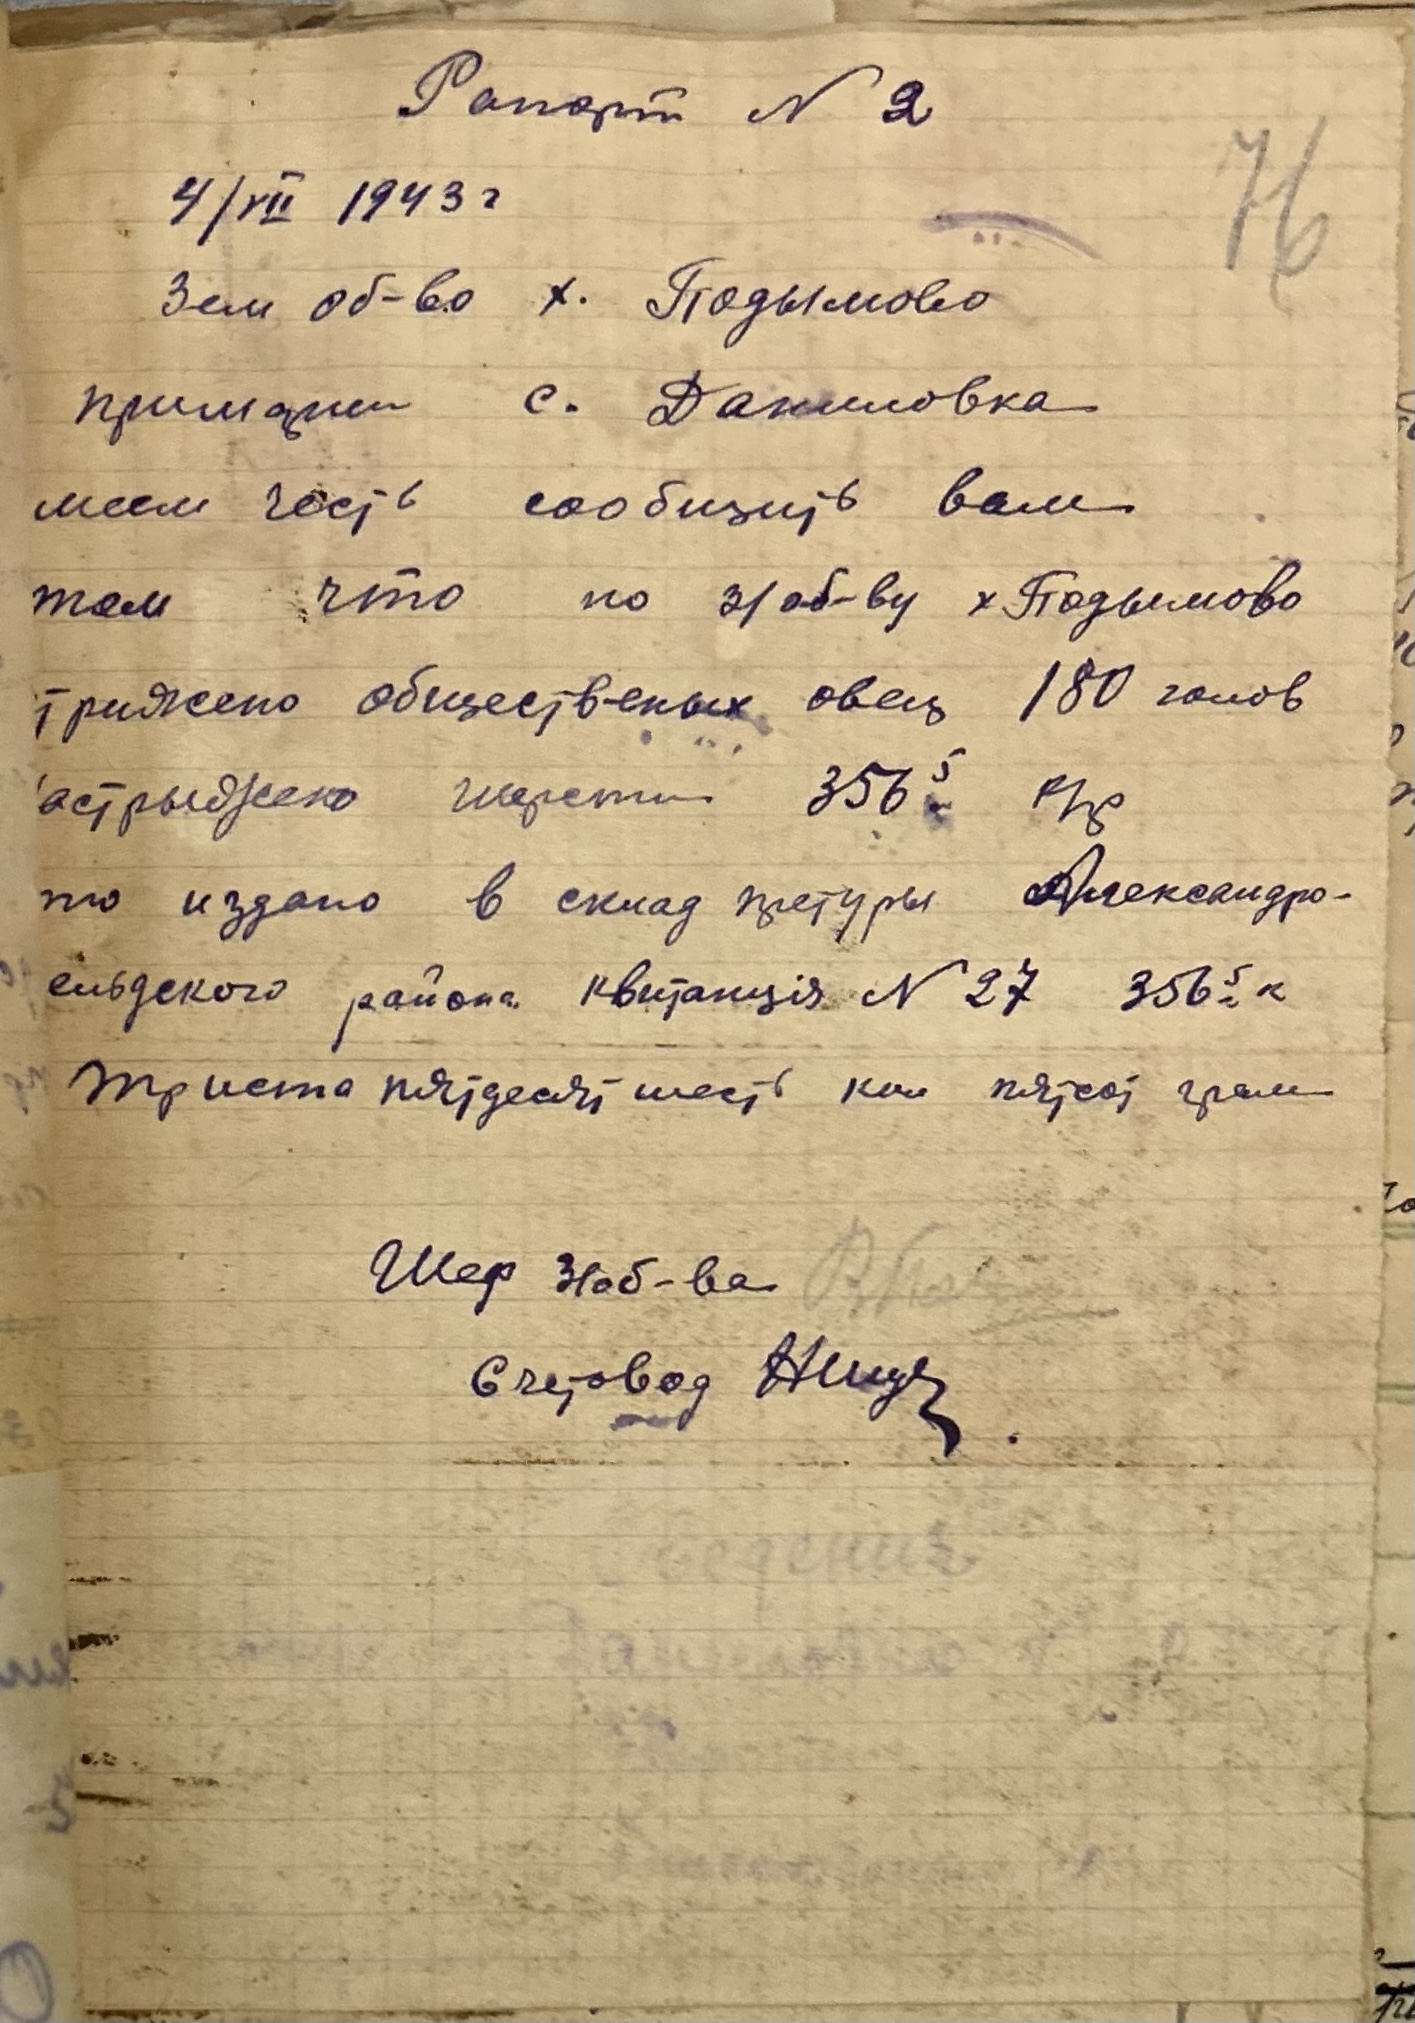 Рапорт N 2
76
4/VII 1943 г
Зем об-во х. Подымово
примарии с. Даниловка
меем честь сообщить вам
том что по з/об-ву х Подымово
трижено общественых овец 180 голов
астрыджено шерсти 356 5 к/гр
то издано в склад претуры Александро-
ельдского района квитанція N 27 356 5 к
триста пятдесят шесть кил пятсот грам
Шеф з/об-ва
Счетовод